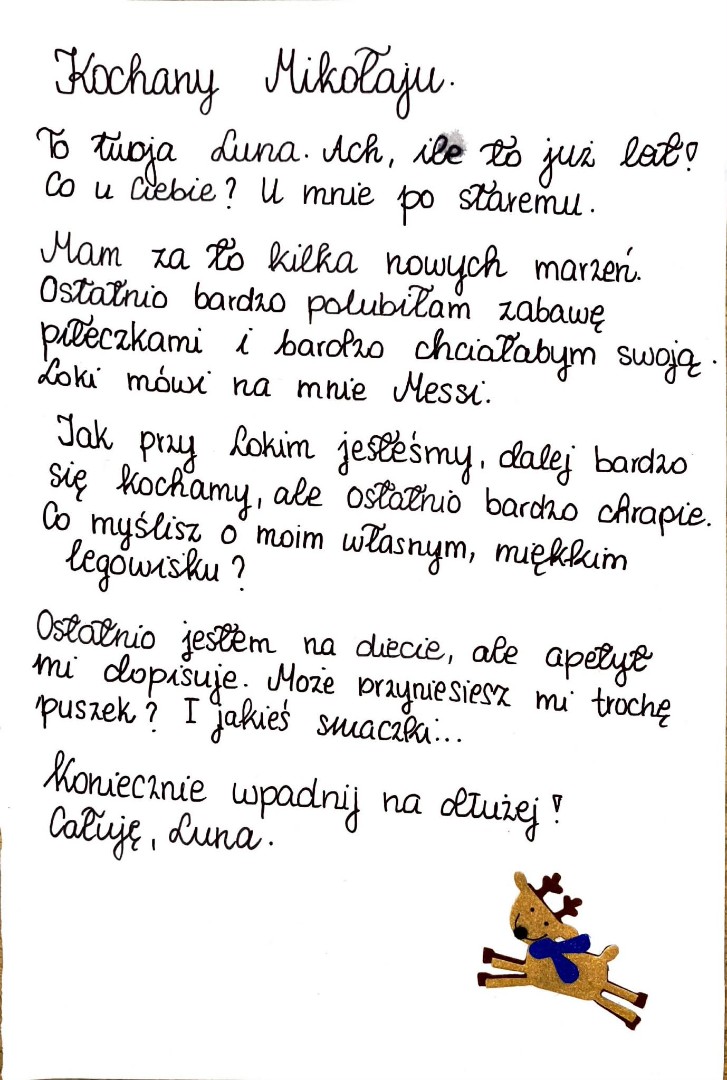 Kochany Mikołaju.
To twoja Luna. Ach, ile to już lat!
Co u Ciebie? U mnie po staremu.
Mam za to kilka nowych marzeń.
Ostatnio bardzo polubiłam zabawę
piłeczkami i bardzo chciałabym swoją.
Loki mówi na mnie Messi.
Jak przy Lokim jesteśmy, dalej bardzo
się kochamy, ale ostatnio bardzo chrapie.
Co myślisz o moim własnym, miękkim
legowisku?
Ostatnio jestem na diecie, ale apetyt
mi dopisuje. Może przyniesiesz mi trochę
puszek? I jakieś smaczki...
Koniecznie wpadnij na dłużej!
Całuję, Luna.